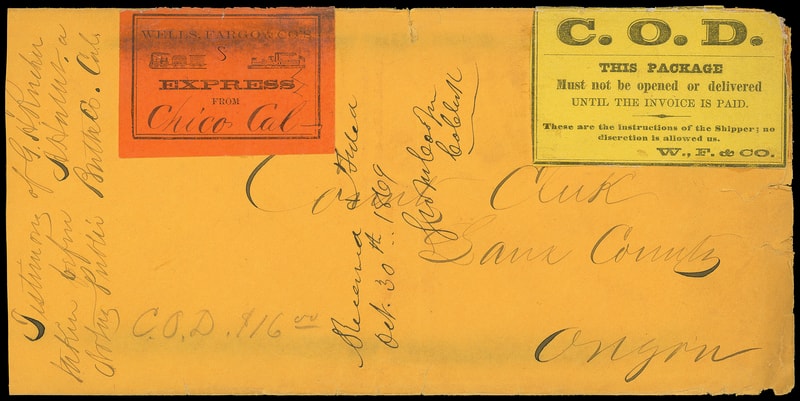 WELLS, FARGO & CO'S
EXPRESS
FROM
Chico Cal
C. O. D.
THIS PACKAGE
Must not be opened or delivered
UNTIL THE INVOICE IS PAID.
These are the instructions of the Shipper; no
discretion is allowed us.
W., F. & CO.
County Clerk
Lane County
Oregon
C.O.D. $16 00
Testimony of
taken before a
Notary Public Butte Co. Cal.
Received &
Oct. 30th 1869